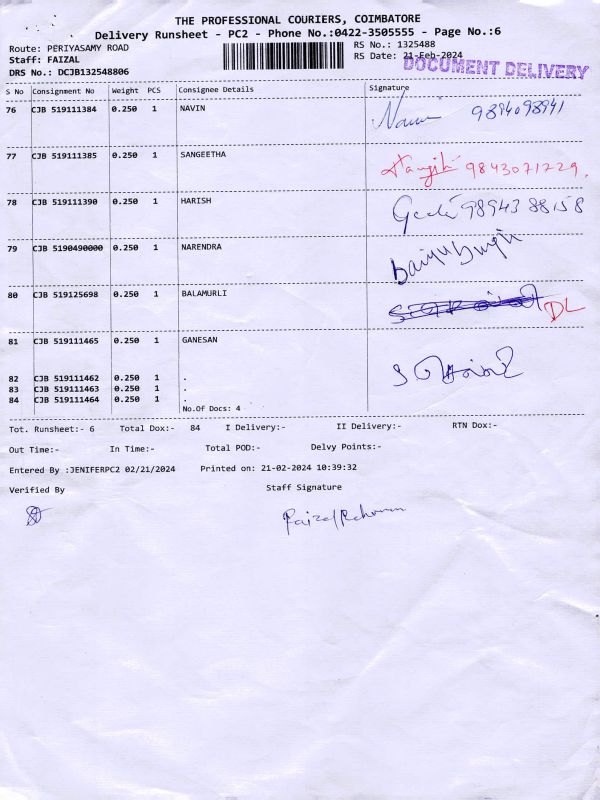 THE PROFESSIONAL COURIERS, COIMBATORE
Delivery Runsheet - PC2 - Phone No.:0422-3505555 - Page No.:6
Route: PERIYASAMY ROAD RS No.: 1325488
Staff: FAIZAL RS Date: 21-Feb-2024
DOCUMENT DELIVERY
DRS No.: DCJB132548806
S No Consignment No Weight PCS Consignee Details Signature
76 CJB 519111384 0.250 1 NAVIN 9894098941
77 CJB 519111385 0.250 1 SANGEETHA 9843071729.
78 CJB 519111390 0.250 1 HARISH 9894388158
79 CJB 5190490000 0.250 1 NARENDRA
80 CJB 519125698 0.250 1 BALAMURLI DL
81 CJB 519111465 0.250 1 GANESAN
82 CJB 519111462 0.250 1 .
83 CJB 519111463 0.250 1 .
84 CJB 519111464 0.250 1 .
No.Of Docs: 4
Tot. Runsheet:- 6 Total Dox:- 84 I Delivery:- II Delivery:- RTN Dox:-
Out Time:- In Time:- Total POD:- Delvy Points:-
Entered By :JENIFERPC2 02/21/2024 Printed on: 21-02-2024 10:39:32
Verified By Staff Signature